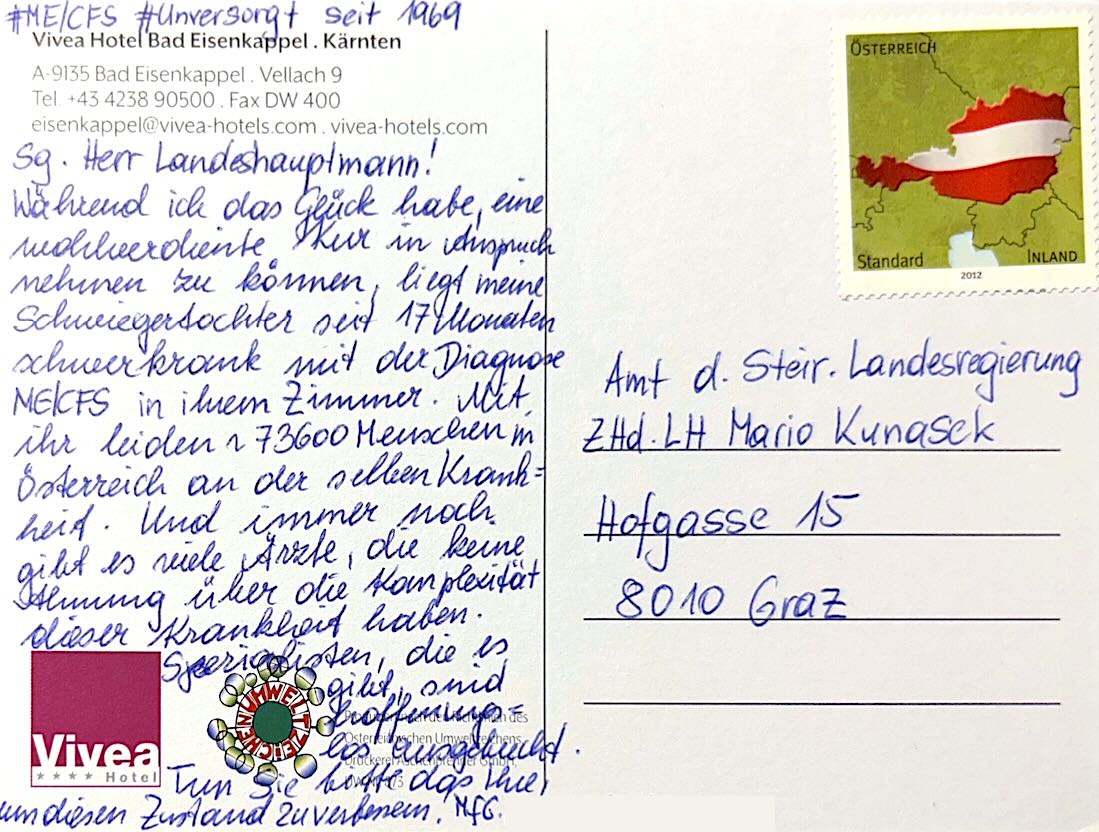 #ME/CFS #Unversorgt seit 1969
Vivea Hotel Bad Eisenkappel . Kärnten
A-9135 Bad Eisenkappel . Vellach 9
Tel. +43 4238 90500 . Fax DW 400
eisenkappel@vivea-hotels.com . vivea-hotels.com
Sg. Herr Landeshauptmann!
Während ich das Glück habe, eine
wohlverdiente Kur in Anspruch
nehmen zu können, liegt meine
Schwiegertochter seit 17 Monaten
schwerkrank mit der Diagnose
ME/CFS in ihrem Zimmer. Mit
ihr leiden ~ 73600 Menschen in
Österreich an der selben Krank=
heit. Und immer noch
gibt es viele Ärzte, die keine
Ahnung über die Komplexität
dieser Krankheit haben.
Spezialisten, die es
gibt, sind
hoffnungs=
los ausgebucht.
Tun Sie bitte das Ihre,
um diesen Zustand zu verbessern. MfG.
Vivea
**** Hotel
UMWELTZEICHEN
des
Österreichischen Umweltzeichens,
Druckerei GmbH,
ÖSTERREICH
Standard
INLAND
2012
Amt d. Steir. Landesregierung
ZHd. LH Mario Kunasek
Hofgasse 15
8010 Graz